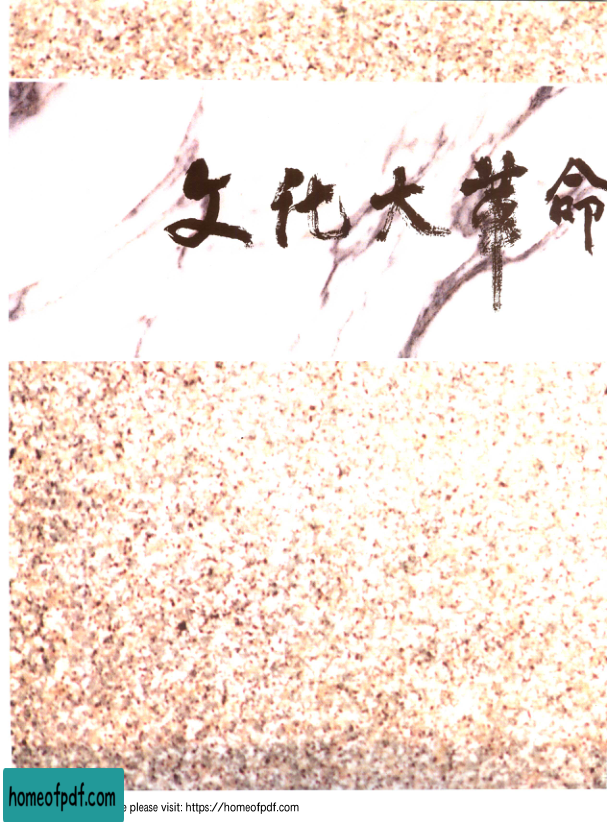 文化大革命
homeofpdf.com
e please visit: https://homeofpdf.com